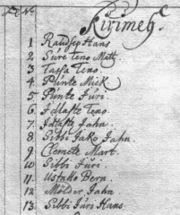 Kirimeg.
1. Raudsep Hans
2. Sure Teno Matz
3. Tassa Teno.
4. Plinte Mick
5. Punte Jüri.
6. Teno.
7. Jahn.
8. Sibbi Jako Jahn.
9. Clemete Mart.
10. Sibbi Jüri.
11. Ustalo Bern.
12. Mölder Jahn
13. Sibbi Jüri Hans.